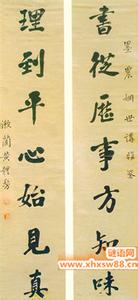 書從歷事方知味
墨農姻世講雅鑒
理到平心始見真
漱蘭黃體芳
谜语网
www.xhxsw88.cn